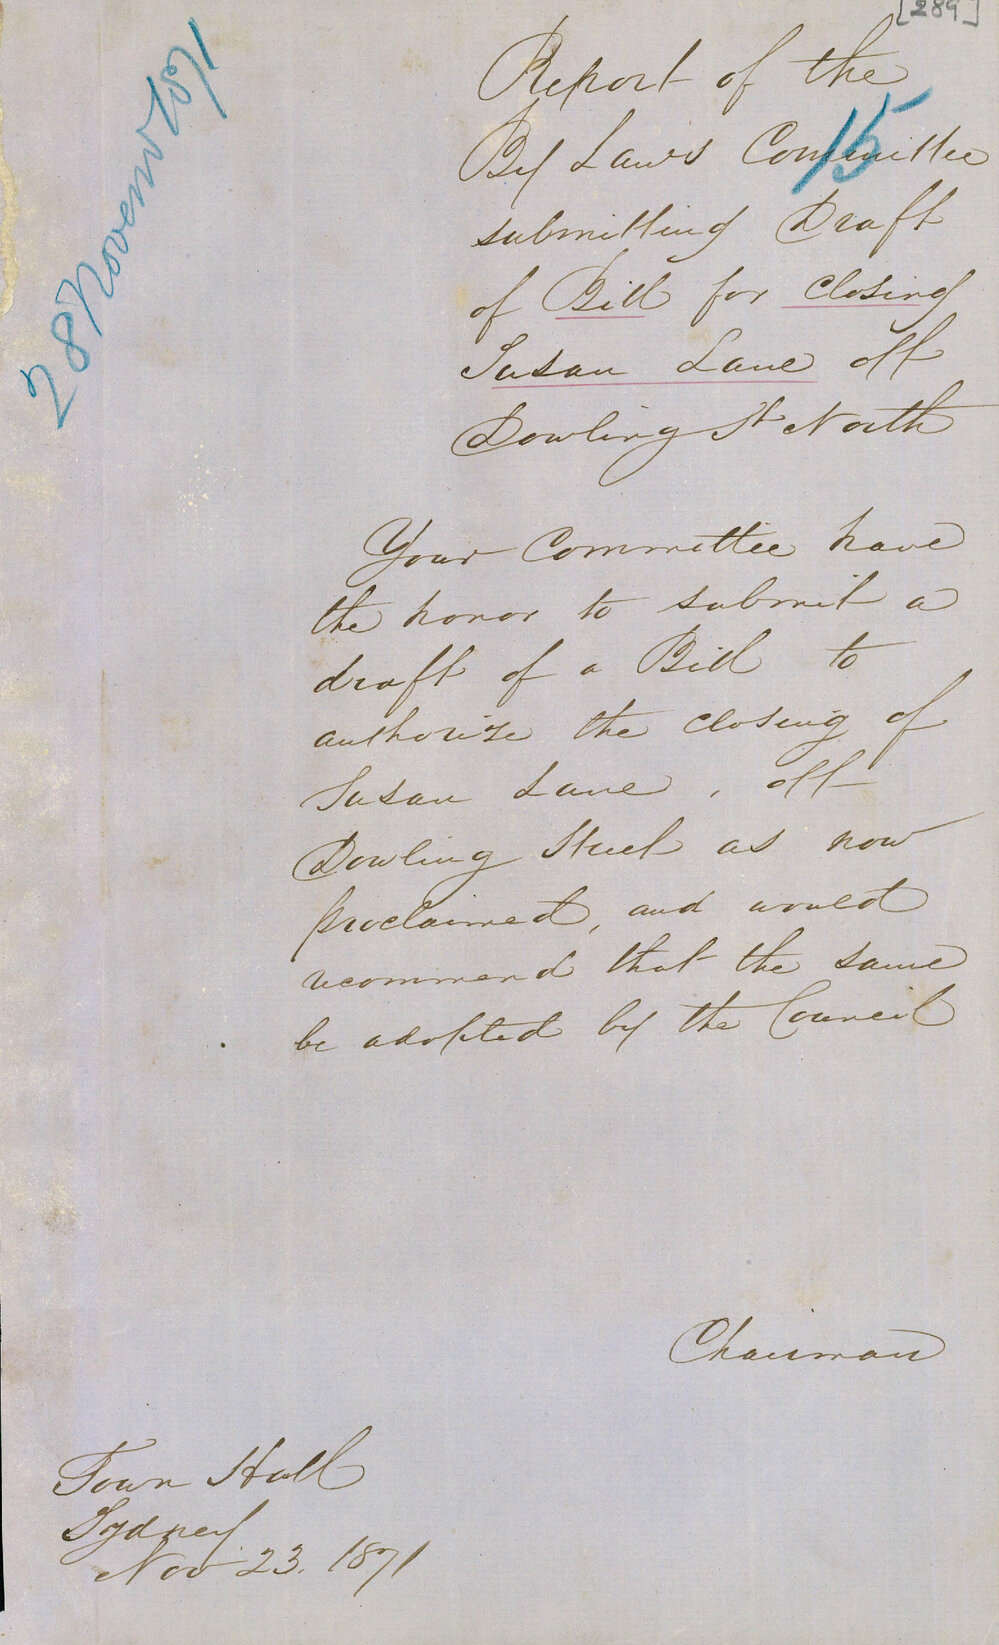 [289]
28 Novemr 1871
15
Report of the
By Laws Committee
submitting Draft
of Bill for closing
Susan Lane off
Dowling St North
Your Committee have
the honor to submit a
draft of a Bill to
authorize the closing of
Susan Lane, off
Dowling Street as now
proclaimed, and would
recommend that the same
be adopted by the Council
Chairman
Town Hall
Sydney
Nov 23. 1871